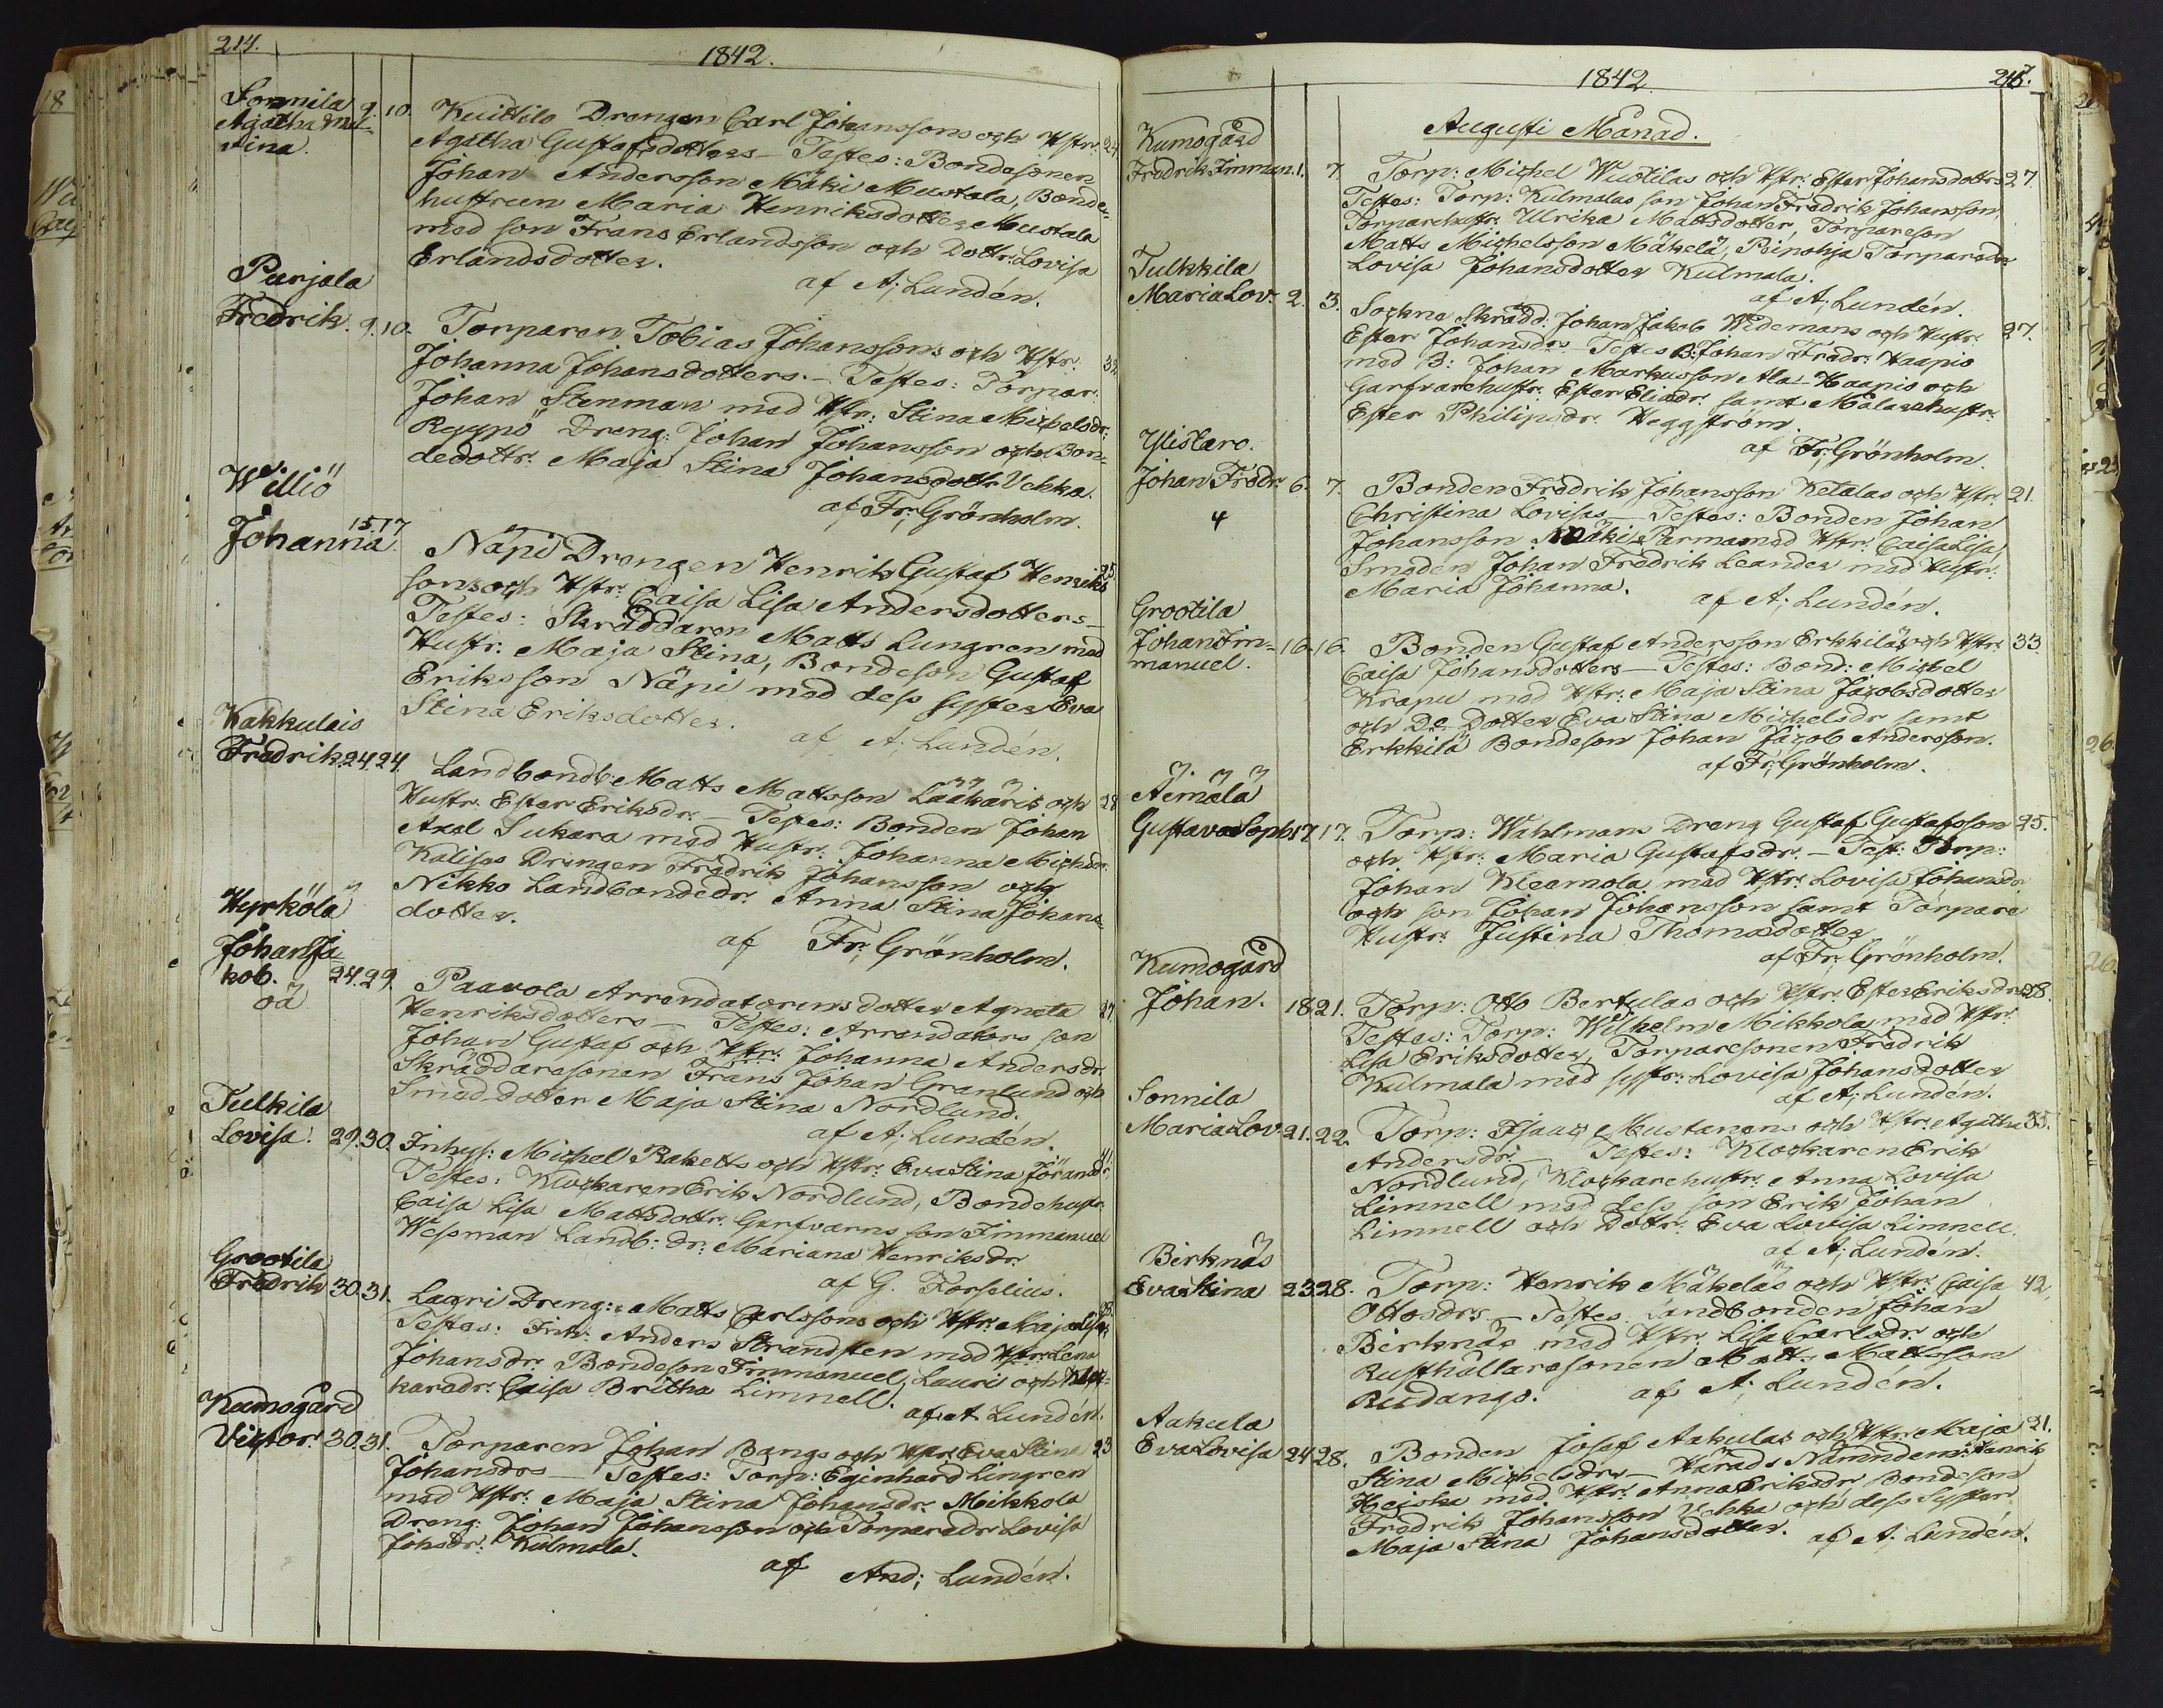 214.
1842.
Sonnila
Agatha Mal-
vina.
9. 10. Kuittilo Drengen Carl Johanssons och Hstr: 24
Agatha Gustafsdotters – Testes: Bondesonen
Johan Andersson Mäki Mustala, Bonde-
hustrun Maria Henriksdotter Mustala
med son Frans Erlandsson och Dottr: Lovisa
Erlandsdotter.
af A; Lundén.
Purjala
Fredrik. 9. 10. Torparen Tobias Johanssons och Hstr: 32
Johanna Johansdotters. – Testes: Torpar:
Johan Stenman med Hstr: Stina Michelsdr:
Ryypö Dreng: Johan Johansson och Bon-
dedottr: Maja Stina Johansdottr Vehka.
af Fr; Grönholm.
Williö
Johanna 15. 17
Näpi Drengen Henrik Gustaf Henriks 25
sons och Hstr: Caisa Lisa Andersdotters –
Testes: Skräddaren Matts Lungren med
Hustr: Maja Stina, Bondeson Gustaf
Eriksson Näpi med dess syster Eva
Stina Eriksdotter.
af A; Lundén.
Kakkulais
Fredrik. 24. 24. Landbond: Matts Mattsson Lääkäris och 28
Hustr: Ester Eriksdr: – Testes: Bonden Johan
Axel Sukara med Hustr: Johanna Michsdr:
Kälisas Drengen Fredrik Johansson och
Nikko Landbondedr: Anna Stina Johans-
dotter.
af Fr; Grönholm.
Hyrkölä
Johan Ja-
kob. 24. 29. Paavola Arrendatorens dotter Agneta 27.
oä
Henriksdotters – Testes: Arrendators son
Johan Gustaf och Hstr: Johanna Andersdr:
Skräddaresonen Frans Johan Granlund och
Smed dotter Maja Stina Nordlund.
af A; Lundén.
Tulkila
Lovisa. 29. 30. Inhys: Michel Raketts och Hstr: Eva Stina Jöransdr: 41
Testes: Klockaren Erik Nordlund, Bondehustr:
Caisa Lisa Mattsdottr: Garfvarens son Immanuel
Wessman Landb: dr: Mariana Henriksdr:
af G. Forselius.
Grootila
Fredrik 30. 31. Lauri Dreng: Matts Carlssons och Hstr: Maja Lisa 28.
Testes: Inh: Anders Strandsten med Hstr: Lena
Johansdr: Bondeson Immanuel Lauri och Kloc-
karedr: Caisa Britha Limnell.
af A Lundén.
Kumogård
Victor. 30. 31. Torparen Johan Bangs och Hstr: Eva Stina 23
Johansdrs – Testes: Torp: Eginhard Lingren
med Hstr: Maja Stina Johansdr: Mikkola
Dreng: Johan Johansson och Torparedr: Lovisa
Johsdr: Kulmala.
af And; Lundén.
1842.
215.
Augusti Månad.
Kumogård
Fredrik Imman. 1. 7. Torp: Michel Wuotilas och Hstr: Ester Johansdotters 27.
Testes: Torp: Kulmalas son Johan Fredrik Johansson,
Torparehustr: Ulrika Mattsdotter, Torpareson
Matts Michelsson Mäkelä, Peipohja Torparedr:
Lovisa Johansdotter Kulmala.
af A; Lundén.
Tulkkila
Maria Lov: 2. 3. Sockne Skrädd: Johan Jakob Widemans och Hustr: 27.
Ester Johansdrs – Testes B: Johan Fredr: Haapio
med B: Johan Markusson Ala-Haapio och
Garfvarehustr: Ester Eliædr: samt Målarehustr:
Ester Philipsdr: Heggström.
af Fr; Grönholm.
Ylistaro.
Johan Fredr: 6. 7. Bonden Fredrik Johansson Ketolas och Hstr: 21.
4
Christina Lovisas – Testes: Bonden Johan
Johansson Mäki Parma med Hstr: Caisa Lisa,
Smeden Johan Fredrik Leander med Hustr:
Maria Johanna.
af A; Lundén.
Grootila
Johan Im-
manuel. 16. 16. Bonden Gustaf Andersson Erkkiläs och Hstr: 33.
Caisa Johansdotters – Testes: Bond: Michel
Krapu med Hstr: Maja Stina Jacobsdotter
och De Dotter Eva Stina Michelsdr: samt
Erkkilä Bondeson Johan Jacob Andersson.
af Fr; Grönholm.
Äimälä
Gustava Soph: 17 17. Torp: Wahlmans Dreng Gustaf Gustafsson 25.
och Hstr: Maria Gustafsdr: – Test: Torp:
Johan Kleemola med Hstr: Lovisa Johansdr:
och son Johan Johansson samt Torpare
Hustr: Justina Thomædotter
af Fr; Grönholm.
Kumogård
Johan. 18 21. Torp: Otto Bertulas och Hstr: Ester Eriksdrs 28.
Testes: Torp: Wilhelm Mikkola med Hstr:
Lisa Eriksdotter, Torparesonen Fredrik
Kulmala med systr: Lovisa Johansdotter
af A; Lundén.
Sonnila
Maria Lov: 21. 22. Torp: Isaac Mustanens och Hstr: Agatha 35.
Andersdr: – Testes: Klockaren Erik
Nordlund, Klockarehustr: Anna Lovisa
Limnell med dess son Erik Johan
Limnell och Dottr: Eva Lovisa Limnell
af A; Lundén.
Birknäs
Eva Stina 23 28. Torp: Henrik Mäkeläs och Hstr: Caisa 42.
Ottosdrs – Testes Landbonden Johan
Birknäs med Hstr: Lisa Carlsdr: och
Rusthållaresonen Matts Mattsson
Rudango.
af A; Lundén.
Aakula
Eva Lovisa 24 28. Bonden Josef Aakulas och Hstr: Maja 21.
Stina Michelsdrs – Härads Nämndem: Henrik
Heiska med Hstr: Anna Eriksdr: Bondeson
Fredrik Johansson Vehka och dess Syster
Maja Stina Johansdotter.
af A; Lundén.